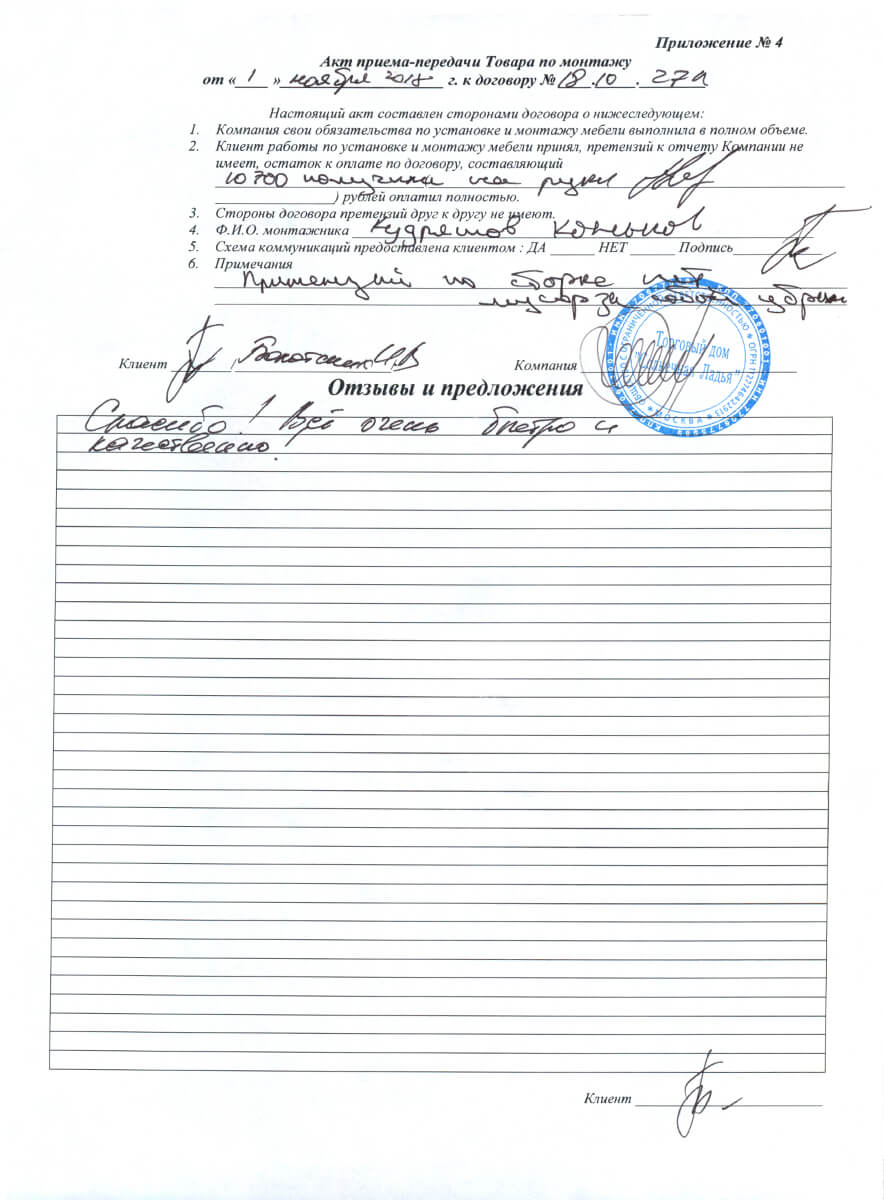 Приложение № 4
Акт приема-передачи Товара по монтажу
от « 1 » ноября 2018 г. к договору № 18.10.279
Настоящий акт составлен сторонами договора о нижеследующем:
1. Компания свои обязательства по установке и монтажу мебели выполнила в полном объеме.
2. Клиент работы по установке и монтажу мебели принял, претензий к отчету Компании не
имеет, остаток к оплате по договору, составляющий
10 700 получила на руки
) рублей оплатил полностью.
3. Стороны договора претензий друг к другу не имеют.
4. Ф.И.О. монтажника Кудряшов Коньков
5. Схема коммуникаций предоставлена клиентом : ДА НЕТ Подпись
6. Примечания
Притензий по сборке нет
мусор за собой убрали
Торговый дом
Клиент
Компания
Отзывы и предложения
Спасибо! Всё очень быстро и
качественно.
Клиент